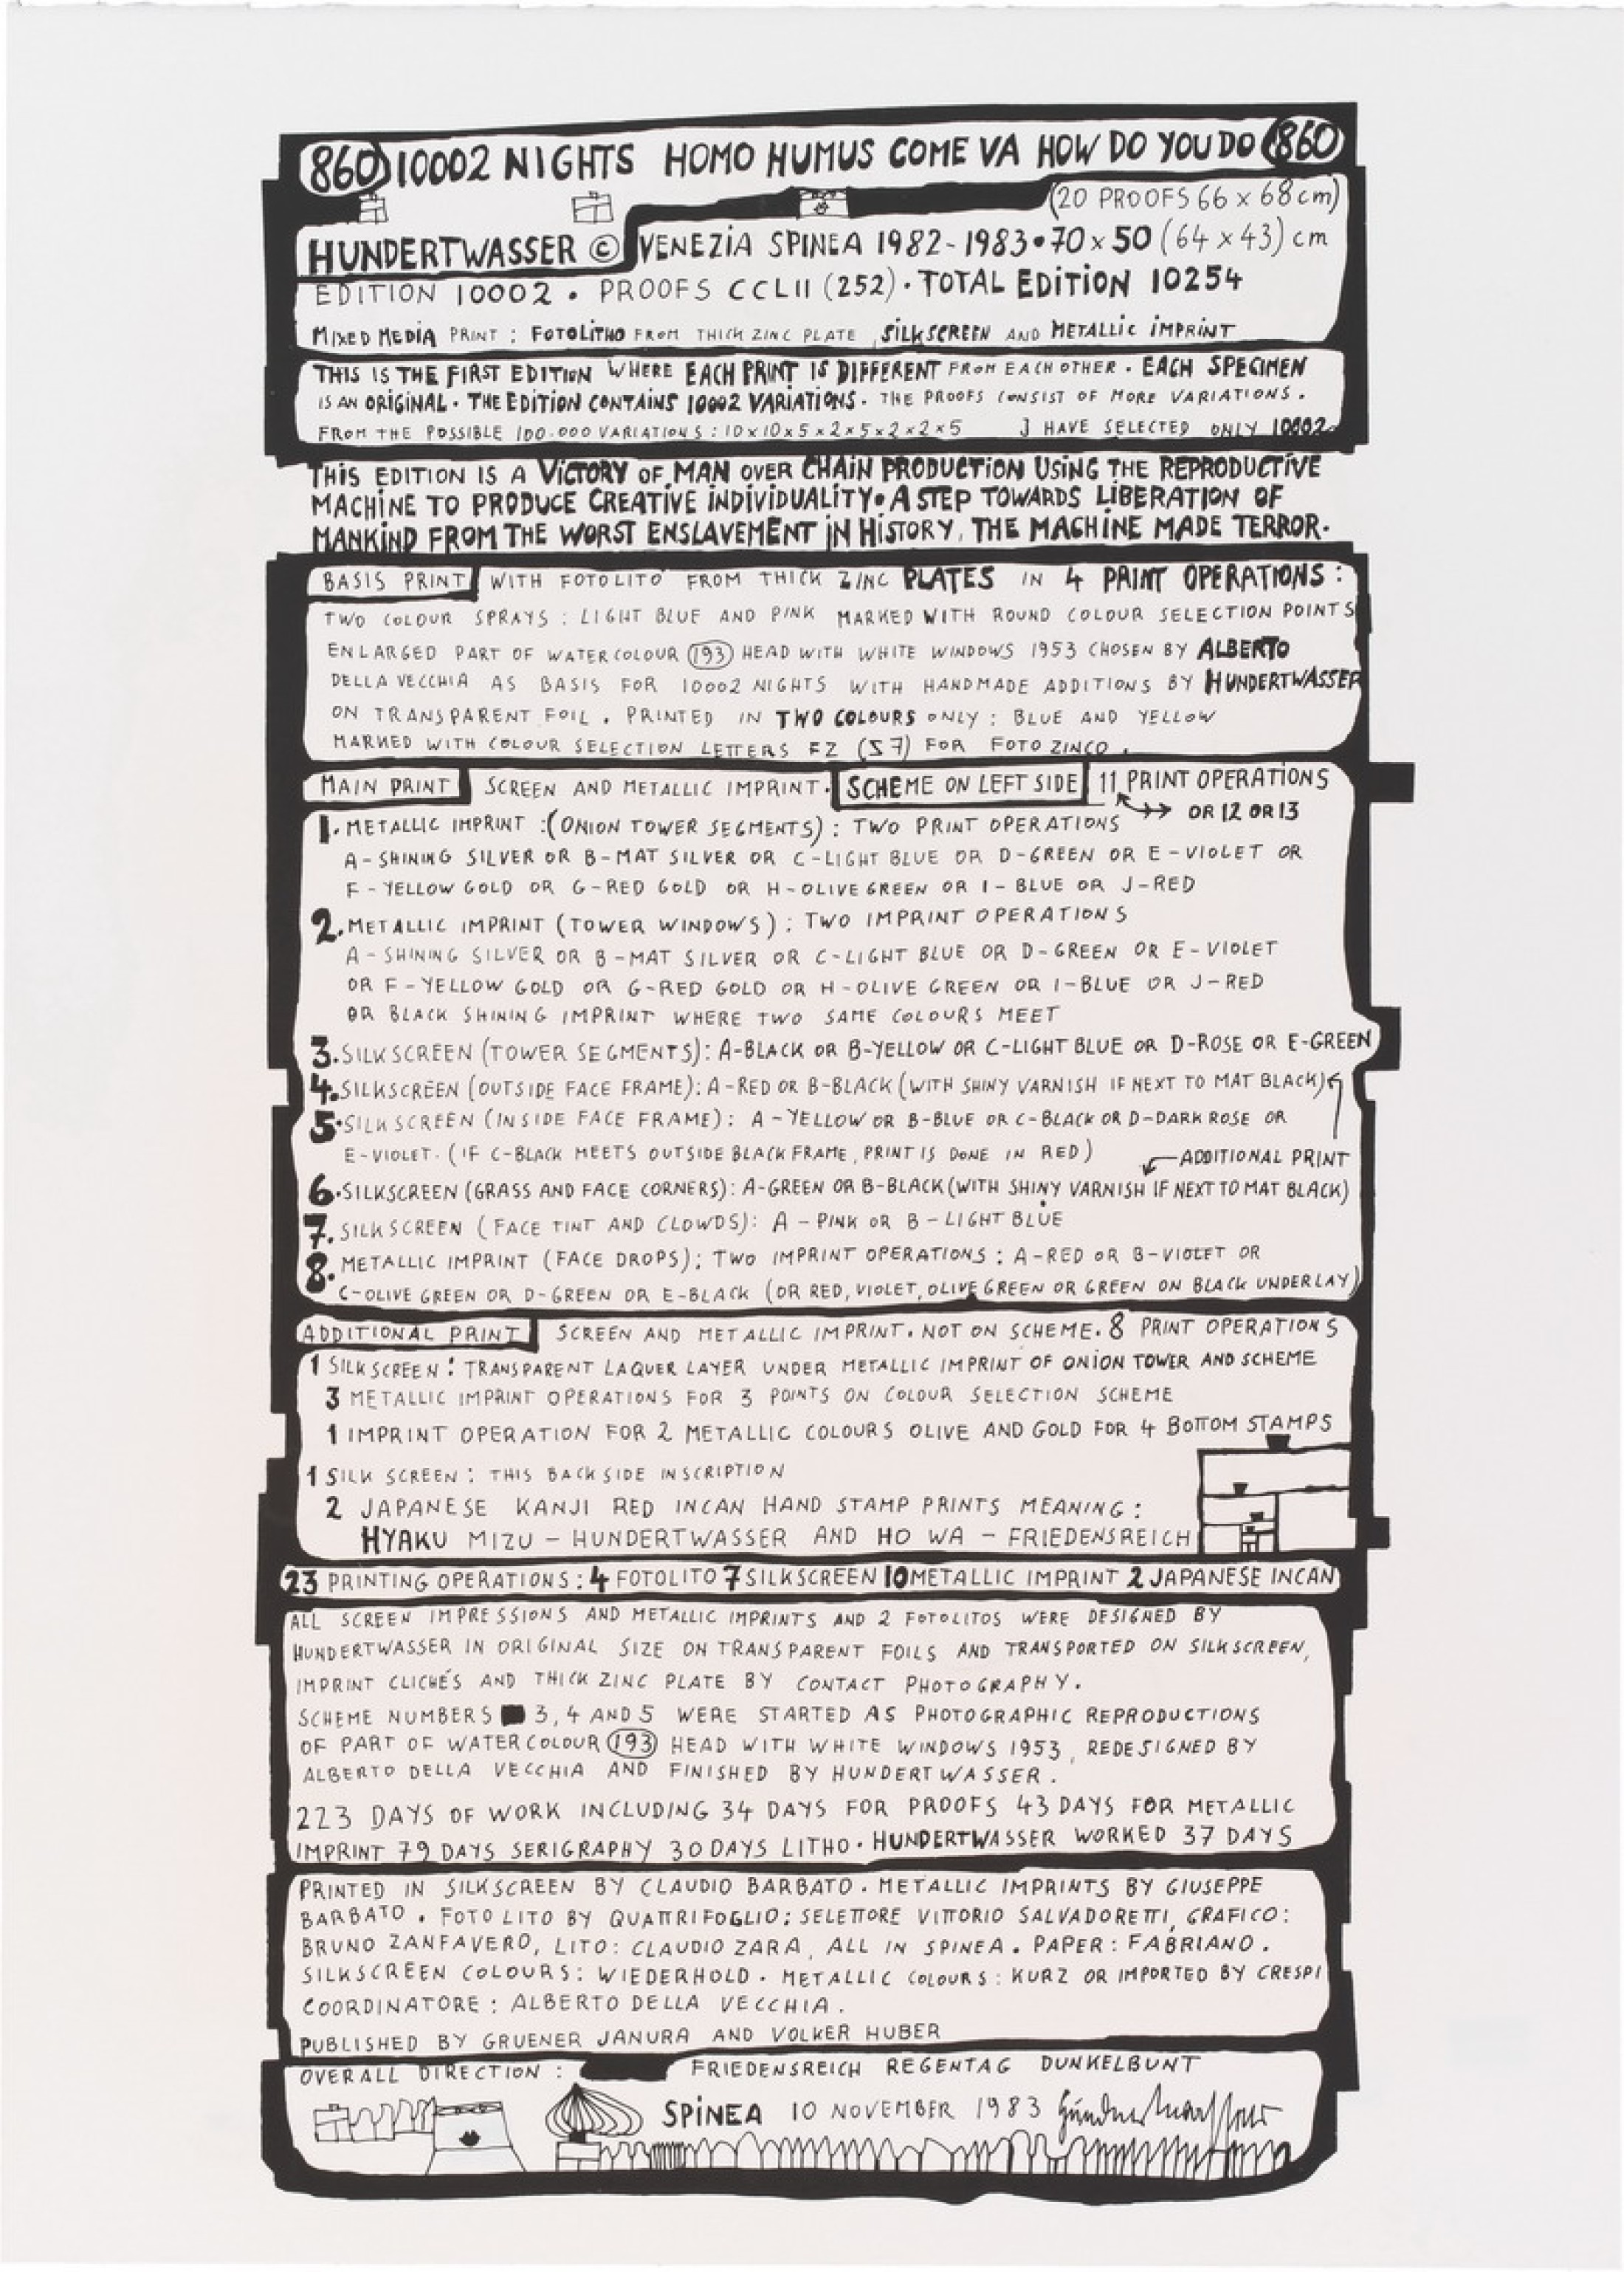 860 10002 NIGHTS HOMO HUMUS COME VA HOW DO YOU DO 860
(20 PROOFS 66 x 68 cm)
HUNDERTWASSER © VENEZIA SPINEA 1982-1983 • 70 x 50 (64 x 43) cm
EDITION 10002 . PROOFS CCLII (252) . TOTAL EDITION 10254
MIXED MEDIA PRINT : FOTOLITHO FROM THICK ZINC PLATE , SILKSCREEN AND METALLIC IMPRINT
THIS IS THE FIRST EDITION WHERE EACH PRINT IS DIFFERENT FROM EACH OTHER . EACH SPECIMEN
IS AN ORIGINAL . THE EDITION CONTAINS 10002 VARIATIONS . THE PROOFS CONSIST OF MORE VARIATIONS .
FROM THE POSSIBLE 100.000 VARIATIONS : 10 x 10 x 5 x 2 x 5 x 2 x 2 x 5 J HAVE SELECTED ONLY 10002
THIS EDITION IS A VICTORY OF MAN OVER CHAIN PRODUCTION USING THE REPRODUCTIVE
MACHINE TO PRODUCE CREATIVE INDIVIDUALITY • A STEP TOWARDS LIBERATION OF
MANKIND FROM THE WORST ENSLAVEMENT IN HISTORY, THE MACHINE MADE TERROR .
BASIS PRINT WITH FOTOLITO FROM THICK ZINC PLATES IN 4 PRINT OPERATIONS :
TWO COLOUR SPRAYS : LIGHT BLUE AND PINK MARKED WITH ROUND COLOUR SELECTION POINTS
ENLARGED PART OF WATERCOLOUR 193 HEAD WITH WHITE WINDOWS 1953 CHOSEN BY ALBERTO
DELLA VECCHIA AS BASIS FOR 10002 NIGHTS WITH HANDMADE ADDITIONS BY HUNDERTWASSER
ON TRANSPARENT FOIL . PRINTED IN TWO COLOURS ONLY : BLUE AND YELLOW
MARKED WITH COLOUR SELECTION LETTERS FZ (57) FOR FOTO ZINCO .
MAIN PRINT SCREEN AND METALLIC IMPRINT . SCHEME ON LEFT SIDE 11 PRINT OPERATIONS
OR 12 OR 13
1. METALLIC IMPRINT : (ONION TOWER SEGMENTS) : TWO PRINT OPERATIONS
A-SHINING SILVER OR B-MAT SILVER OR C-LIGHT BLUE OR D-GREEN OR E-VIOLET OR
F-YELLOW GOLD OR G-RED GOLD OR H-OLIVE GREEN OR I-BLUE OR J-RED
2. METALLIC IMPRINT (TOWER WINDOWS) : TWO IMPRINT OPERATIONS
A-SHINING SILVER OR B-MAT SILVER OR C-LIGHT BLUE OR D-GREEN OR E-VIOLET
OR F-YELLOW GOLD OR G-RED GOLD OR H-OLIVE GREEN OR I-BLUE OR J-RED
OR BLACK SHINING IMPRINT WHERE TWO SAME COLOURS MEET
3. SILKSCREEN (TOWER SEGMENTS) : A-BLACK OR B-YELLOW OR C-LIGHT BLUE OR D-ROSE OR E-GREEN
4. SILKSCREEN (OUTSIDE FACE FRAME) : A-RED OR B-BLACK (WITH SHINY VARNISH IF NEXT TO MAT BLACK)
5. SILKSCREEN (INSIDE FACE FRAME) : A-YELLOW OR B-BLUE OR C-BLACK OR D-DARK ROSE OR
E-VIOLET . (IF C-BLACK MEETS OUTSIDE BLACK FRAME, PRINT IS DONE IN RED) ADDITIONAL PRINT
6. SILKSCREEN (GRASS AND FACE CORNERS) : A-GREEN OR B-BLACK (WITH SHINY VARNISH IF NEXT TO MAT BLACK)
7. SILKSCREEN (FACE TINT AND CLOWDS) : A-PINK OR B-LIGHT BLUE
8. METALLIC IMPRINT (FACE DROPS) ; TWO IMPRINT OPERATIONS : A-RED OR B-VIOLET OR
C-OLIVE GREEN OR D-GREEN OR E-BLACK (OR RED, VIOLET, OLIVE GREEN OR GREEN ON BLACK UNDERLAY)
ADDITIONAL PRINT SCREEN AND METALLIC IMPRINT . NOT ON SCHEME . 8 PRINT OPERATIONS
1 SILKSCREEN : TRANSPARENT LAQUER LAYER UNDER METALLIC IMPRINT OF ONION TOWER AND SCHEME
3 METALLIC IMPRINT OPERATIONS FOR 3 POINTS ON COLOUR SELECTION SCHEME
1 IMPRINT OPERATION FOR 2 METALLIC COLOURS OLIVE AND GOLD FOR 4 BOTTOM STAMPS
1 SILK SCREEN : THIS BACK SIDE INSCRIPTION
2 JAPANESE KANJI RED INCAN HAND STAMP PRINTS MEANING :
HYAKU MIZU - HUNDERTWASSER AND HO WA - FRIEDENSREICH
23 PRINTING OPERATIONS : 4 FOTOLITO 7 SILKSCREEN 10 METALLIC IMPRINT 2 JAPANESE INCAN
ALL SCREEN IMPRESSIONS AND METALLIC IMPRINTS AND 2 FOTOLITOS WERE DESIGNED BY
HUNDERTWASSER IN ORIGINAL SIZE ON TRANSPARENT FOILS AND TRANSPORTED ON SILKSCREEN,
IMPRINT CLICHÉS AND THICK ZINC PLATE BY CONTACT PHOTOGRAPHY .
SCHEME NUMBERS 3, 4 AND 5 WERE STARTED AS PHOTOGRAPHIC REPRODUCTIONS
OF PART OF WATERCOLOUR 193 HEAD WITH WHITE WINDOWS 1953, REDESIGNED BY
ALBERTO DELLA VECCHIA AND FINISHED BY HUNDERTWASSER .
223 DAYS OF WORK INCLUDING 34 DAYS FOR PROOFS 43 DAYS FOR METALLIC
IMPRINT 79 DAYS SERIGRAPHY 30 DAYS LITHO . HUNDERTWASSER WORKED 37 DAYS
PRINTED IN SILKSCREEN BY CLAUDIO BARBATO . METALLIC IMPRINTS BY GIUSEPPE
BARBATO . FOTOLITO BY QUATTRIFOGLIO ; SELETTORE VITTORIO SALVADORETTI, GRAFICO :
BRUNO ZANFAVERO, LITO : CLAUDIO ZARA, ALL IN SPINEA . PAPER : FABRIANO .
SILKSCREEN COLOURS : WIEDERHOLD . METALLIC COLOURS : KURZ OR IMPORTED BY CRESPI
COORDINATORE : ALBERTO DELLA VECCHIA .
PUBLISHED BY GRUENER JANURA AND VOLKER HUBER
OVERALL DIRECTION : FRIEDENSREICH REGENTAG DUNKELBUNT
SPINEA 10 NOVEMBER 1983 Hundertwasser